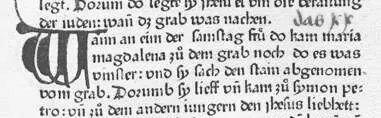 legt. Dozum do legte sy jhesu et vm die beraitung
der iuden: wañ dz grab was nachen.
Das XX
Wann an eim der samstag frů do kam maria
magdalena zů dem grab noch do es was
vinster: vnd sy sach den stain abgenomen
vom grab. Dozumb sy lieff vñ kam zů symon pe
tro: vñ zů dem andern iungern den jhesus liebhett: